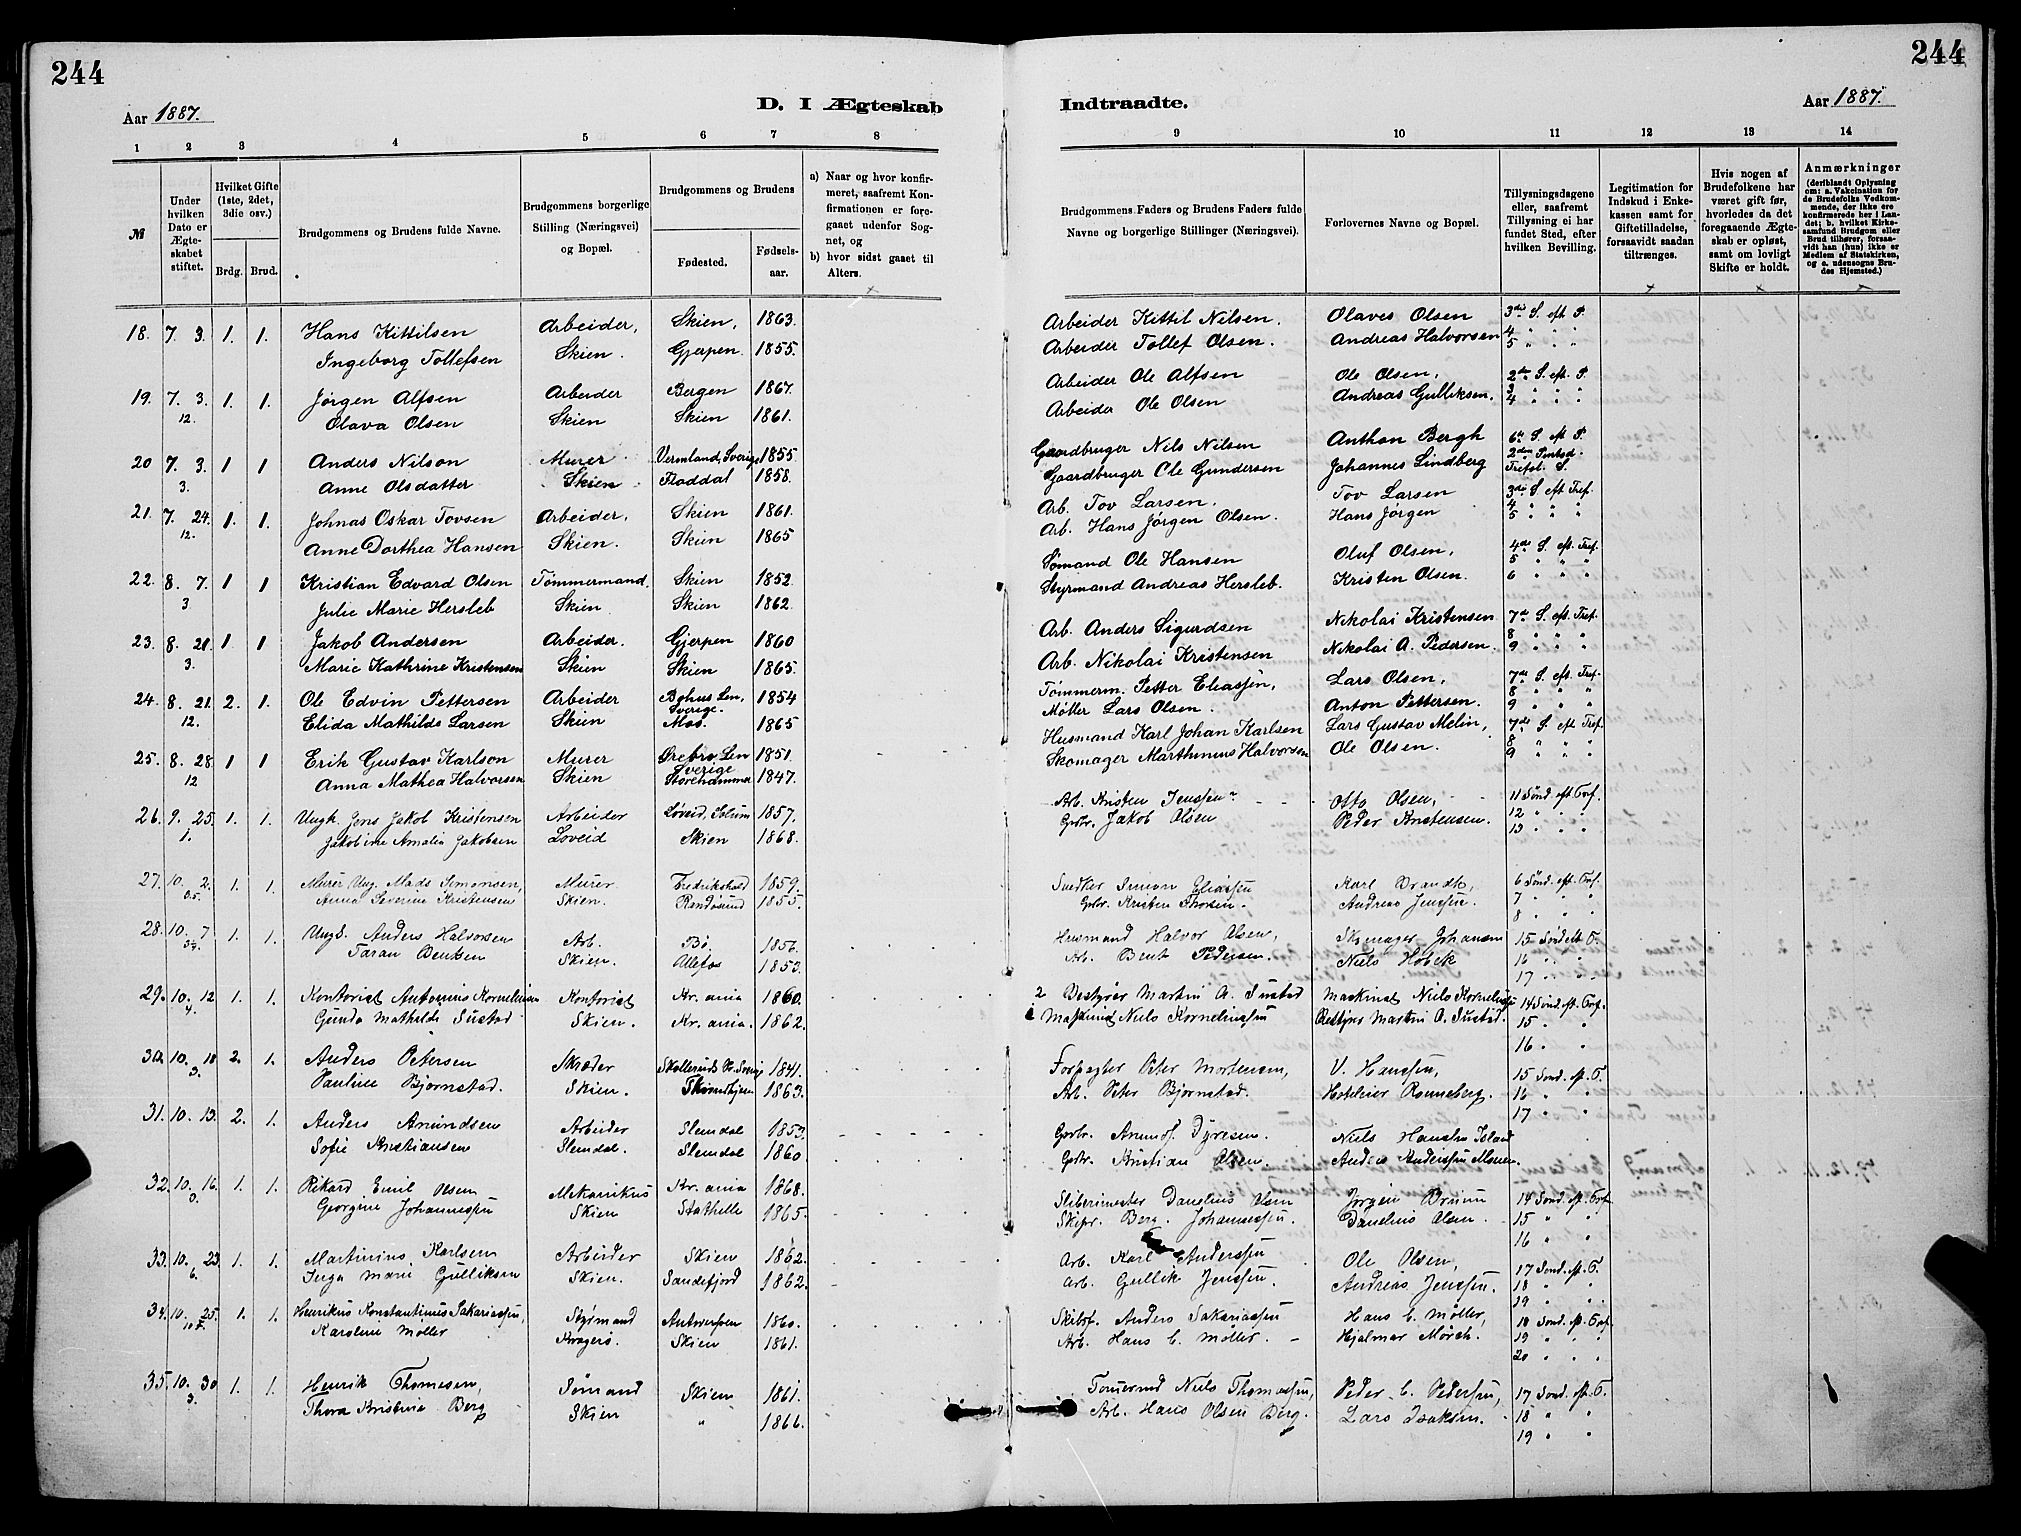 244
244
Aar 1887.
D. I Ægteskab
Indtraadte.
Aar 1887.
1 2 3 4 5 6 7 8
9 10 11 12 13 14
№
Under hvilken Dato er Ægteskabet stiftet.
Hvilket Gifte (1ste, 2det, 3die osv.)
Brdg. Brud.
Brudgommens og Brudens fulde Navne.
Brudgommens borgerlige Stilling (Næringsvei) og Bopæl.
Brudgommens og Brudens
Fødested.
Fødselsaar.
a) Naar og hvor konfirmeret, saafremt Konfirmationen er foregaaet udenfor Sognet, og
b) hvor sidst gaaet til Alters.
Brudgommens Faders og Brudens Faders fulde Navne og borgerlige Stillinger (Næringsvei).
Forlovernes Navne og Bopæl.
Tillysningsdagene eller, saafremt Tillysning ei har fundet Sted, efter hvilken Bevilling.
Legitimation for Indskud i Enkekassen samt for Giftetilladelse, forsaavidt saadan tiltrænges.
Hvis nogen af Brudefolkene har været gift før, hvorledes da det foregaaende Ægteskab er opløst, samt om lovligt Skifte er holdt.
Anmærkninger
(deriblandt Oplysning om: a. Vakcination for de Brudefolks Vedkommende, der ikke ere konfirmerede her i Landet; b. hvilket Kirkesamfund Brudgom eller Brud tilhører, forsaavidt han (hun) ikke er Medlem af Statskirken, og c. udensogns Brudes Hjemsted.)
18. 7. 3. 1. 1. Hans Kittilsen Arbeider, Skien. 1863. Arbeider Kittil Nilsen. Olaves Olsen 3die S. eft P.
Ingeborg Tollefsen Skien. Gjerpen 1855. Arbeider Tollef Olsen. Andreas Halvorsen 4 " " "
5 " " "
19. 7. 3. 1. 1. Jørgen Alfsen Arbeider Bergen 1867. Arbeider Ole Alfsen Ole Olsen, 2den S. eft. P.
12. Olava Olsen Skien Skien 1861. Arbeider Ole Olsen Andreas Gulliksen. 3 " " "
4 " " "
20 7. 3. 1 1 Anders Nilson Murer Vermland, Sverige 1855 Gaardbruger Nils Nilsen Anthon Bergh 6te S. eft P.
3. Anne Olsdatter Skien Fladdal 1858. Gaardbruger Ole Gundersen Johannes Lindberg 2den Pintsd.
Trefol. S.
21. 7. 24. 1. 1. Johnas Oskar Tovsen Arbeider. Skien 1861. Arb. Tov Larsen. Tov Larsen 3die S. eft Tref.
12. Anne Dorthea Hansen Skien. Skien 1865 Arb. Hans Jörgen Olsen. Hans Jørgen 4 " " "
5 " " "
22. 8. 7. 1 1 Kristian Edvard Olsen Tømmermand. Skien 1852. Sømand Ole Hansen Oluf Olsen, 4de S. eft. Tref.
3. Julie Marie Hersleb Skien Skien 1862. Styrmand Andreas Hersleb. Kristen Olsen. 5 " " "
6 " " "
23. 8. 21. 1 1 Jakob Andersen Arbeider. Gjerpen 1860 Arb. Anders Sigurdsen Nikolai Kristensen 7de S. eft. Tref.
3. Marie Kathrine Kristensen Skien Skien 1865. Arb. Nikolai Kristensen Nikolai A. Pedersen. 8 " " "
9 " " "
24. 8. 21. 2. 1. Ole Edvin Pettersen Arbeider Bohus Len, Sverige. 1854 Tømmerm. Petter Eliassen, Lars Olsen, 7de S. eft. Tref.
12. Elida Mathilde Larsen Skien Moss. 1865 Møller Lars Olsen. Anton Pettersen. 8 " " "
9 " " "
25. 8. 28. 1 1 Erik Gustav Karlson Murer Ørebro Len Sverige 1851. Husmand Karl Johan Karlsen Lars Gustav Melin, 7de S. eft Tref.
12 Anna Mathea Halvorsen Skien Storehammer 1847. Skomager Marthinius Halvorsen Ole Olsen. 8 " " "
9 " " "
26. 9. 25. 1. 1. Ungk. Jens Jakob Kristensen Arbeider Løveid, Solum 1857. Arb. Kristen Jenssen Otto Olsen, 11 Sønd. eft. Tref.
1. Jakobine Amalia Jakobsen Løveid Skien 1868. Gbr. Jakob Olsen Peder Kristensen. 12 " " "
13 " " "
27. 10. 2. 1. 1. Murer Ung. Mads Simonsen, Murer Fredrikshald 1859. Snedker Simon Eliassen Karl Brandt, 6 Sønd. eft. Tref.
Anna Severine Kristensen Skien. Randøsund 1855. Kristen Thorsen. Andreas Jenssen. 7 " "
8 " "
28. 10. 7 1. 1. Ungk. Anders Halvorsen Arb. Bø. 1856. Husmand Halvor Olsen, Skomager Johansen 15 Sønd eft T.
Taran Bentsen Skien. Ulefos 1853. Arb. Bent Pedersen. Niels Hobek 16 " "
17 " "
29. 10. 12 1. 1. Kontorist Antonius Kornelius Kontorist Kr.ania 1860. 2 Bestyrer Martin A. Sustad Maskinist Niels Kornelius 14 Sønd. eft. Tref.
4. Gunda Mathilde Sustad Skien. Kr.ania. 1862. 1 Maskinist Niels Korneliussen Bestyrer Martin A. Sustad. 15 " "
16 " "
30. 10. 18 2. 1. Anders Petersen Skræder 1841. Forpagter Peter Mortensen, V. Hanssen, 15 Sønd. ef. T.
3. Pauline Bjørnstad. Skien. Throndhjem 1863. Arb. Peter Bjørnstad. Hoteleier Rønneberg. 16 " "
17 " "
31. 10. 13. 2. 1. Anders Amundsen Arbeider Slemdal 1853. Gbr. Amund Dyresen. Niels Hanssen
Sofie Kristiansen Slemdal. Slemdal 1860 Gbr. Kristian Olsen. Anders Anderssen Moen.
32. 10. 16. 1. 1. Rikard Emil Olsen Mekanikus Kr.ania 1868. Slibermester Danelius Olsen Jørgen Bruun 14 Sønd. ef. Tref.
3. Georgine Johannessen Skien Stathelle 1865. Skipr. Berg. Johannessen. Danelius Olsen. 15 " "
16 " "
33. 10. 23. 1. 1. Martinius Karlsen Arbeider Skien 1862. Arb. Karl Anderssen Ole Olsen, 17 Sønd. ef. T.
6. Inga Marie Gulliksen Skien. Sandefjord 1862. Arb. Gullik Jenssen. Andreas Jenssen. 18 " "
19 " "
34. 10. 25. 1. 1. Henrikus Konstantinus Sakariassen, Styrmand Antwerpen 1860. Anders Sakariassen Hans C. Møller, 18 Sønd. eft. Tref.
Karoline Møller Kragerø. Skien 1861. Arb. Hans C. Møller. Hjalmar Mørch. 19 " "
20 " "
35. 10. 30 1. 1. Henrik Thomesen, Sømand Skien 1861. Niels Thomassen, Peder C. Pedersen, 17 Sønd. ef. T.
3. Thora Kristine Berg Skien " 1866. Arb. Hans Olsen Berg. Lars Isaksen. 18 " "
19 " "